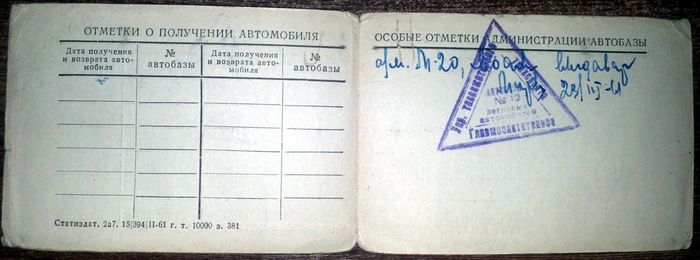 ОТМЕТКИ О ПОЛУЧЕНИИ АВТОМОБИЛЯ
Дата получения и возврата авто-мобиля
№ автобазы
Дата получения и возврата авто-мобиля
№ автобазы
Статиздат, 2а7. 15|394|II-61 г. т. 10000 з. 381
ОСОБЫЕ ОТМЕТКИ АДМИНИСТРАЦИИ АВТОБАЗЫ
а/м. М-20,
23/III-61
№ 12
легковых
автомобилей
Главмосавтотранса